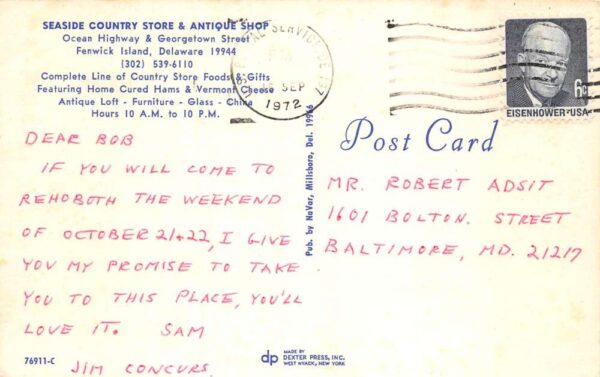 SEASIDE COUNTRY STORE & ANTIQUE SHOP
Ocean Highway & Georgetown Street
Fenwick Island, Delaware 19944
(302) 539-6110
Complete Line of Country Store Foods & Gifts
Featuring Home Cured Hams & Vermont Cheese
Antique Loft - Furniture - Glass - China
Hours 10 A.M. to 10 P.M.
DEAR BOB
IF YOU WILL COME TO
REHOBOTH THE WEEKEND
OF OCTOBER 21+22, I GIVE
YOU MY PROMISE TO TAKE
YOU TO THIS PLACE, YOU'LL
LOVE IT. SAM
JIM CONCURS.
76911-C
Pub. by NaVar, Millsboro, Del. 19966
dp MADE BY
DEXTER PRESS, INC.
WEST NYACK, NEW YORK
SERVICE
SEP
1972
6c
EISENHOWER·USA
Post Card
MR. ROBERT ADSIT
1601 BOLTON. STREET
BALTIMORE, MD. 21217